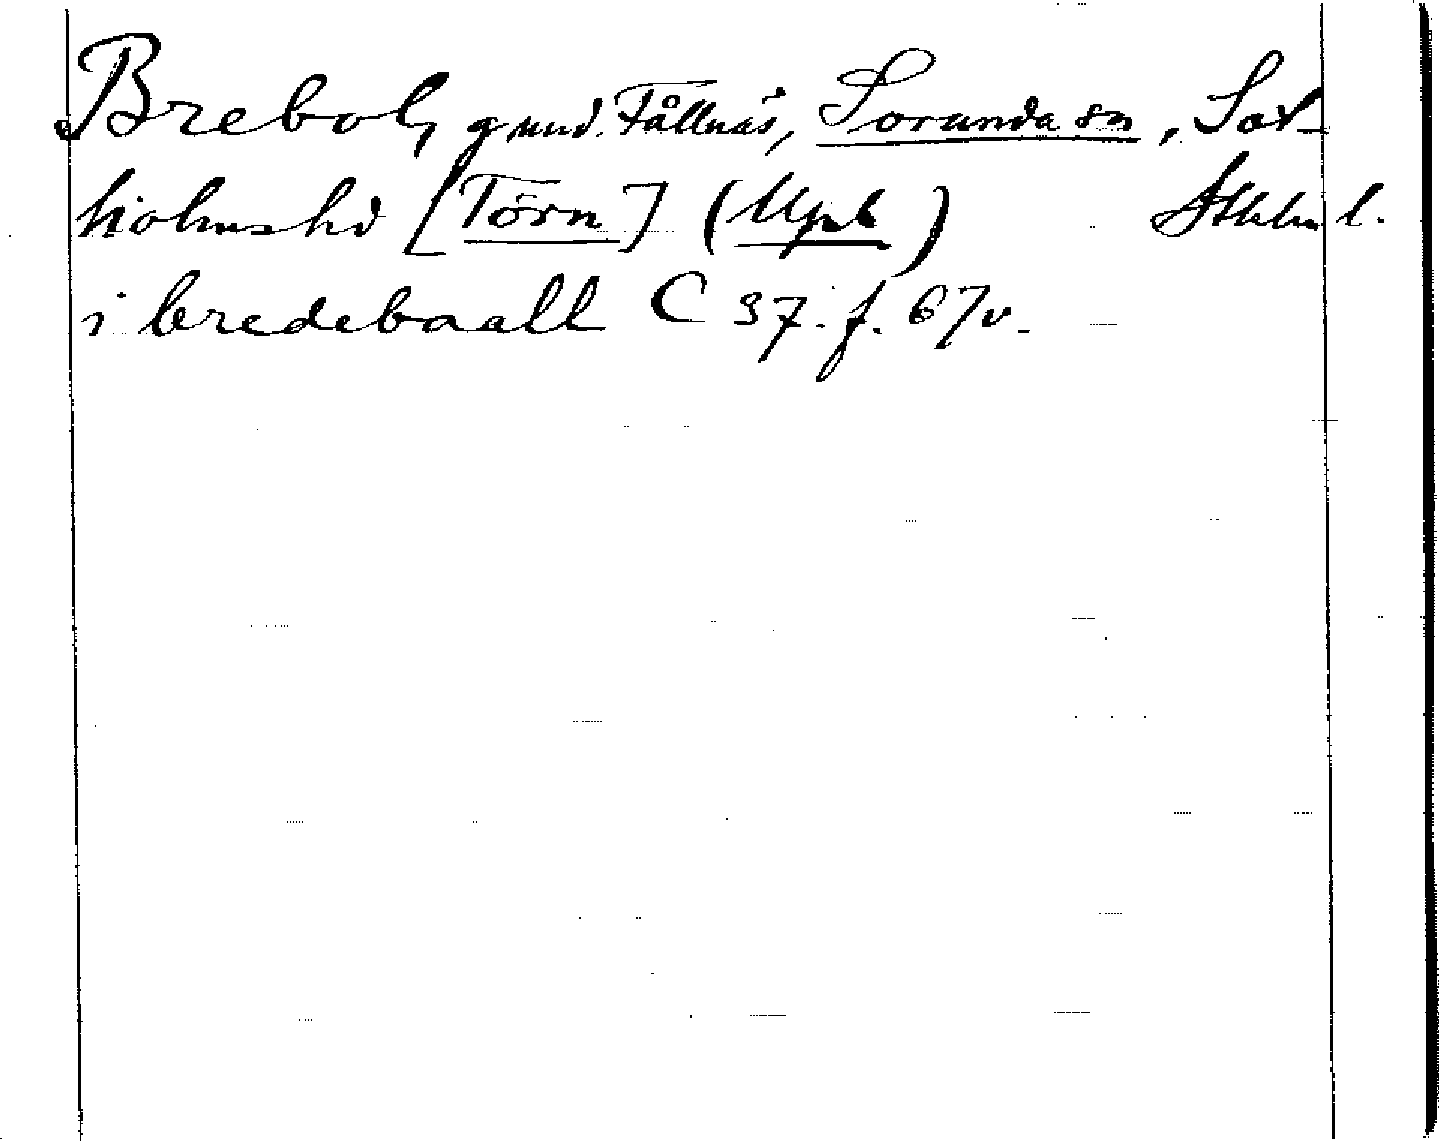 Brebol, g und. Fållnäs, Sorunda sn, Sot-
holms hd [Törn] (Uppl) Sthlm l.
i bredeboall C 37. f. 67v.